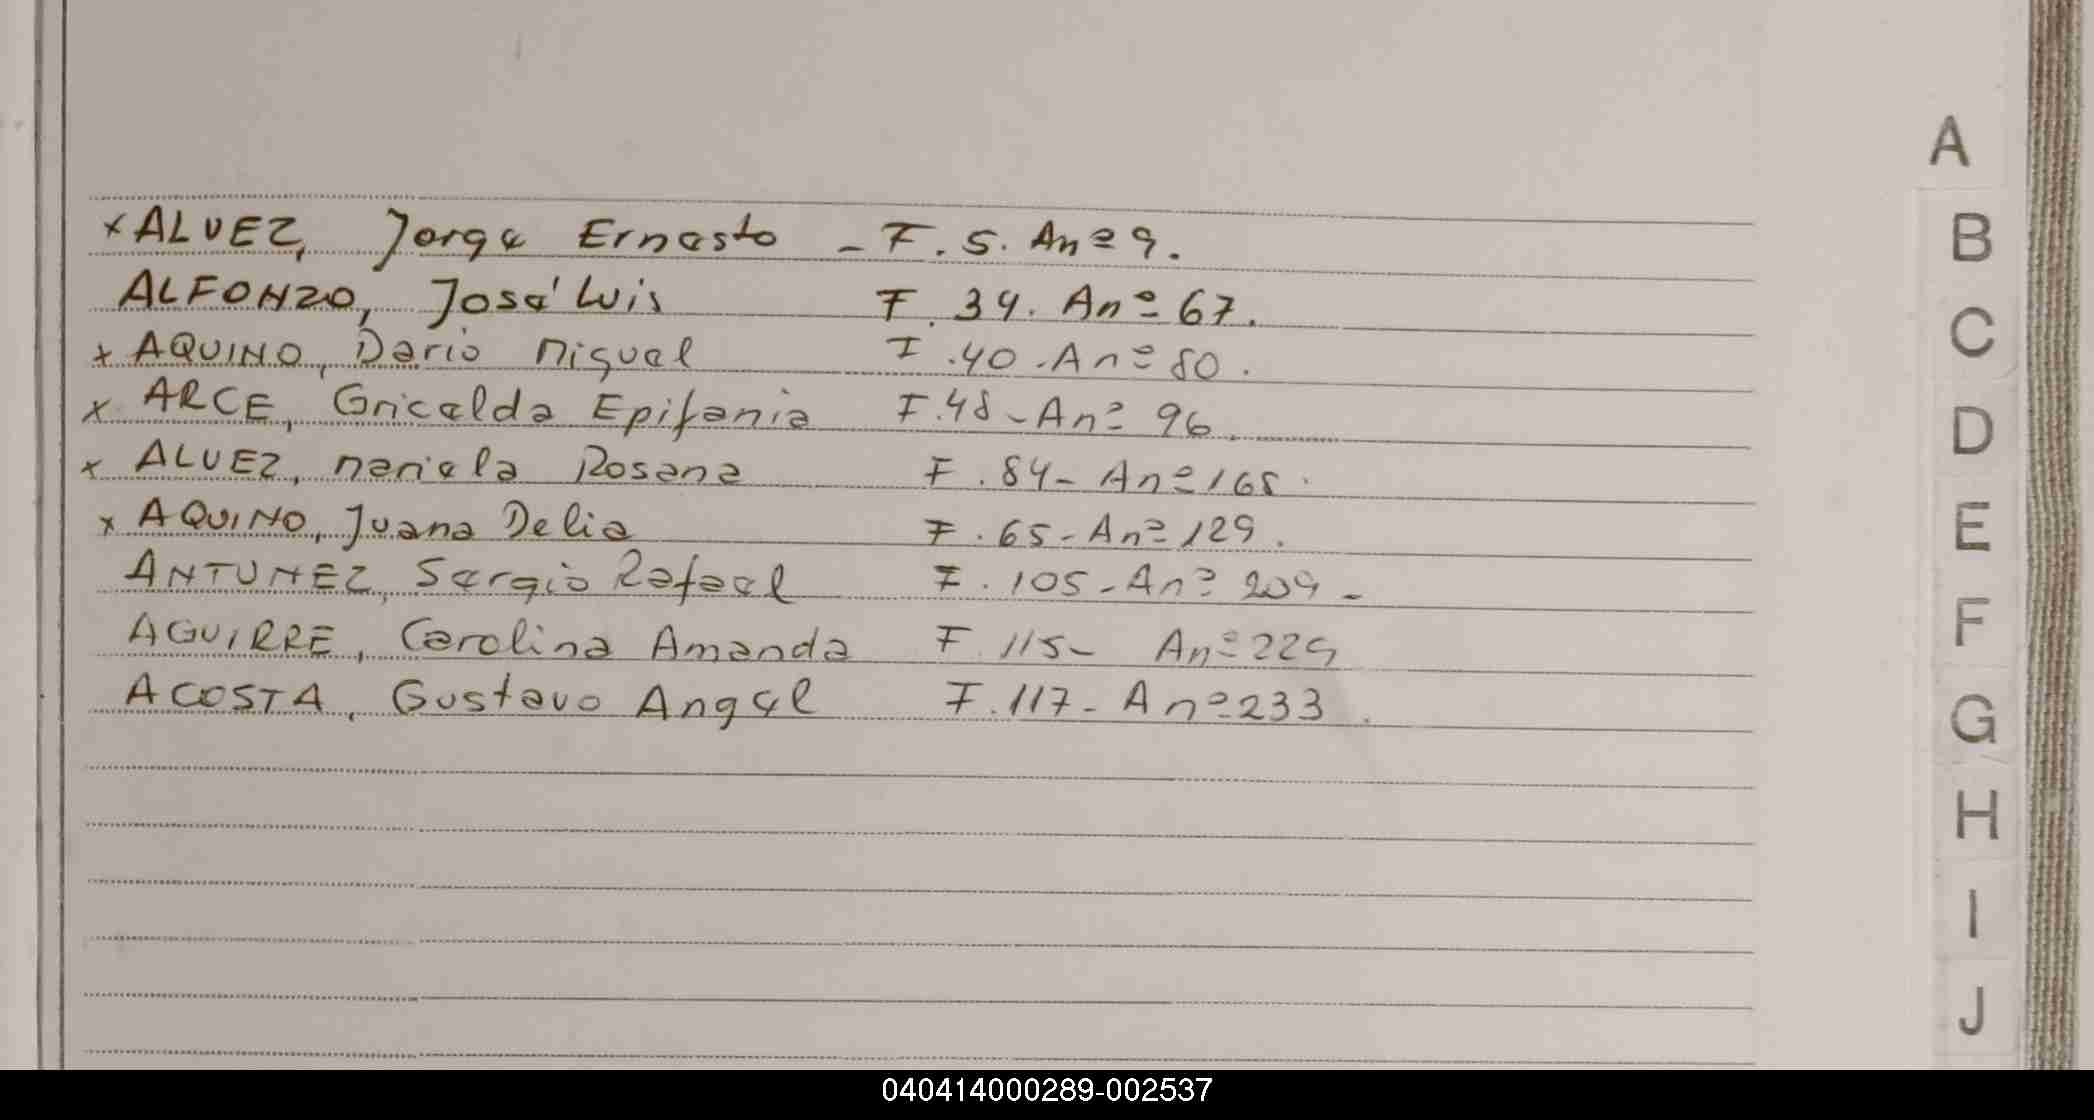 x ALVEZ, Jorge Ernesto - F. 5. An º 9.
ALFONZO, José Luis F. 34. An º 67.
x AQUINO, Dario Miguel F. 40 - An º 80.
x ARCE, Gricelda Epifania F. 48 - An º 96.
x ALVEZ, Mariela Rosana F. 84 - An º 168.
x AQUINO, Juana Delia F. 65 - An º 129.
ANTUNEZ, Sergio Rafael F. 105 - An º 209 -
AGUIRRE, Carolina Amanda F. 115 - An º 229
ACOSTA, Gustavo Angel F. 117 - An º 233.
A
B
C
D
E
F
G
H
I
J
040414000289-002537